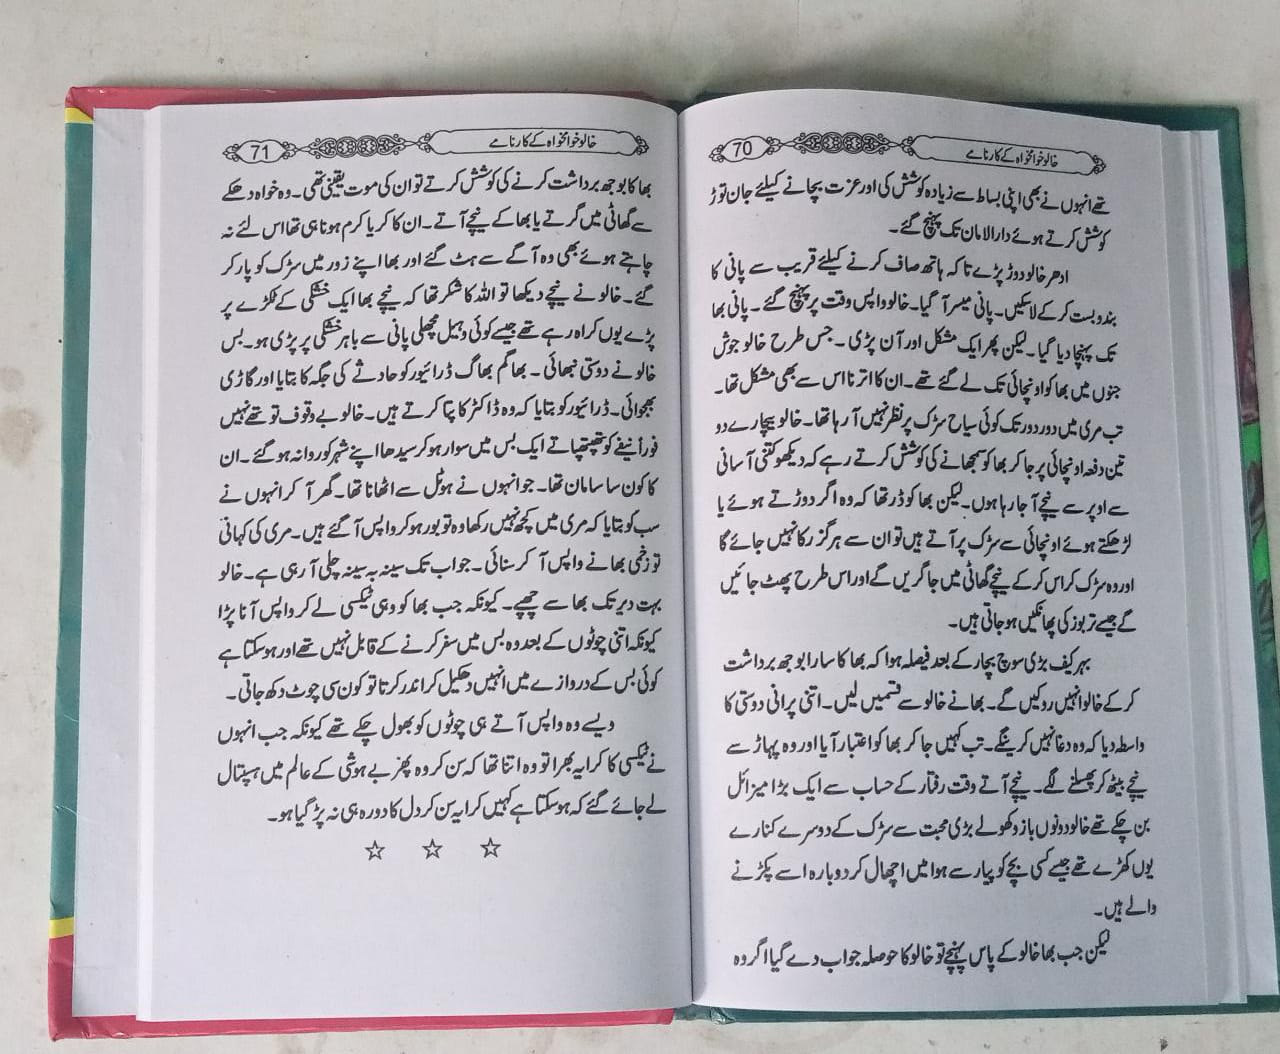 خالو خوامخواہ کے کارنامے
70
تھے انہوں نے بھی اپنی بساط سے زیادہ کوشش کی اور عزت بچانے کیلئے جان توڑ
کوشش کرتے ہوئے دارالامان تک پہنچ گئے۔
ادھر خالو دوڑ پڑے تاکہ ہاتھ صاف کرنے کیلئے قریب سے پانی کا
بندوبست کر کے لا سکیں۔ پانی میسر آ گیا۔ خالو واپس وقت پر پہنچ گئے۔ پانی بھا
تک پہنچا دیا گیا۔ لیکن پھر ایک مشکل اور آن پڑی۔ جس طرح خالو جوش
جنوں میں بھا کو اونچائی تک لے گئے تھے۔ ان کا اترنا اس سے بھی مشکل تھا۔
تب مری میں دور دور تک کوئی سیاح سڑک پر نظر نہیں آ رہا تھا۔ خالو بیچارے دو
تین دفعہ اونچائی پر جا کر بھا کو سمجھانے کی کوشش کرتے رہے کہ دیکھو کتنی آسانی
سے اوپر سے نیچے آ جا رہا ہوں۔ لیکن بھا کو ڈر تھا کہ وہ اگر دوڑتے ہوئے یا
لڑھکتے ہوئے اونچائی سے سڑک پر آتے ہیں تو ان سے ہرگز رکا نہیں جائے گا
اور وہ سڑک کراس کر کے نیچے گھاٹی میں جا گریں گے اور اس طرح پھٹ جائیں
گے جیسے تربوز کی پھانکیں ہو جاتی ہیں۔
بہرکیف بڑی سوچ بچار کے بعد فیصلہ ہوا کہ بھا کا سارا بوجھ برداشت
کر کے خالو انہیں روکیں گے۔ بھا نے خالو سے قسمیں لیں۔ اتنی پرانی دوستی کا
واسطہ دیا کہ وہ دغا نہیں کرینگے۔ تب کہیں جا کر بھا کو اعتبار آیا اور وہ پہاڑ سے
نیچے بیٹھ کر پھسلنے لگے۔ نیچے آتے وقت رفتار کے حساب سے ایک بڑا میزائل
بن چکے تھے خالو دونوں بازو کھولے بڑی محبت سے سڑک کے دوسرے کنارے
یوں کھڑے تھے جیسے کسی بچے کو پیار سے ہوا میں اچھال کر دوبارہ اسے پکڑنے
والے ہیں۔
لیکن جب بھا خالو کے پاس پہنچے تو خالو کا حوصلہ جواب دے گیا اگر وہ
خالو خوامخواہ کے کارنامے
71
بھا کا بوجھ برداشت کرنے کی کوشش کرتے تو ان کی موت یقینی تھی۔ وہ خواہ دھکے
سے گھاٹی میں گرتے یا بھا کے نیچے آتے۔ ان کا کریا کرم ہونا ہی تھا اس لئے نہ
چاہتے ہوئے بھی وہ آگے سے ہٹ گئے اور بھا اپنے زور میں سڑک کو پار کر
گئے۔ خالو نے نیچے دیکھا تو اللہ کا شکر تھا کہ نیچے بھا ایک خشکی کے ٹکڑے پر
پڑے یوں کراہ رہے تھے جیسے کوئی وہیل مچھلی پانی سے باہر خشکی پر پڑی ہو۔ بس
خالو نے دوستی نبھائی۔ بھاگم بھاگ ڈرائیور کو حادثے کی جگہ کا بتایا اور گاڑی
بھجوائی۔ ڈرائیور کو بتایا کہ وہ ڈاکٹر کا پتا کرتے ہیں۔ خالو بے وقوف تو تھے نہیں
فوراً نیفے کو تھپتھپاتے ایک بس میں سوار ہو کر سیدھا اپنے شہر کو روانہ ہو گئے۔ ان
کا کون سا سامان تھا۔ جو انہوں نے ہوٹل سے اٹھانا تھا۔ گھر آ کر انہوں نے
سب کو بتایا کہ مری میں کچھ نہیں رکھا وہ تو بور ہو کر واپس آ گئے ہیں۔ مری کی کہانی
تو زخمی بھا نے واپس آ کر سنائی۔ جو اب تک سینہ بہ سینہ چلی آ رہی ہے۔ خالو
بہت دیر تک بھا سے چھپے۔ کیونکہ جب بھا کو وہی ٹیکسی لے کر واپس آنا پڑا
کیونکہ اتنی چوٹوں کے بعد وہ بس میں سفر کرنے کے قابل نہیں تھے اور ہو سکتا ہے
کوئی بس کے دروازے میں انہیں دھکیل کر اندر کرتا تو کون سی چوٹ دکھ جاتی۔
ویسے وہ واپس آتے ہی چوٹوں کو بھول چکے تھے کیونکہ جب انہوں
نے ٹیکسی کا کرایہ بھرا تو وہ اتنا تھا کہ سن کر وہ پھر بے ہوشی کے عالم میں ہسپتال
لے جائے گئے کہ ہو سکتا ہے کہیں کرایہ سن کر دل کا دورہ ہی نہ پڑ گیا ہو۔
☆ ☆ ☆